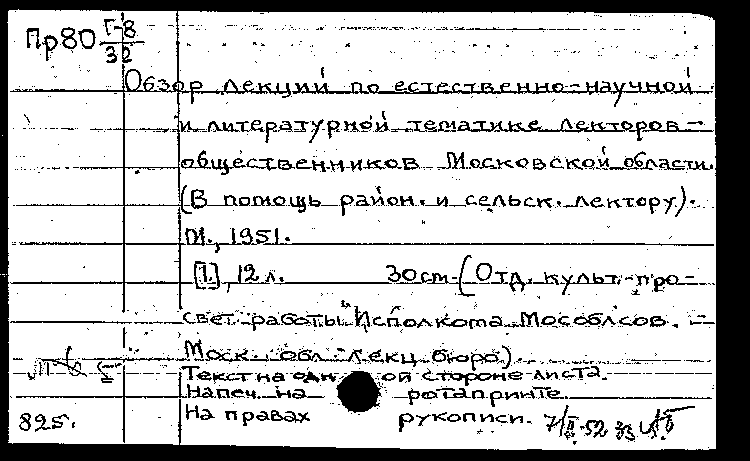 Пр80 Г-8/32
Обзор лекций по естественно-научной
и литературной тематике лекторов-
общественников Московской области.
(В помощь район. и сельск. лектору).
М., 1951.
[1], 12 л. 30 см. (Отд. культ.-про-
свет. работы Исполкома Мособлсов. –
Моск. обл. лекц. бюро).
Текст на одной стороне листа.
Напеч. на ротапринте.
На правах рукописи.
825.